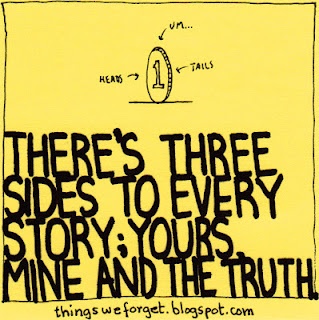 UM...
HEADS
1
TAILS
THERE'S THREE
SIDES TO EVERY
STORY; YOURS,
MINE AND THE TRUTH.
thingsweforget.blogspot.com